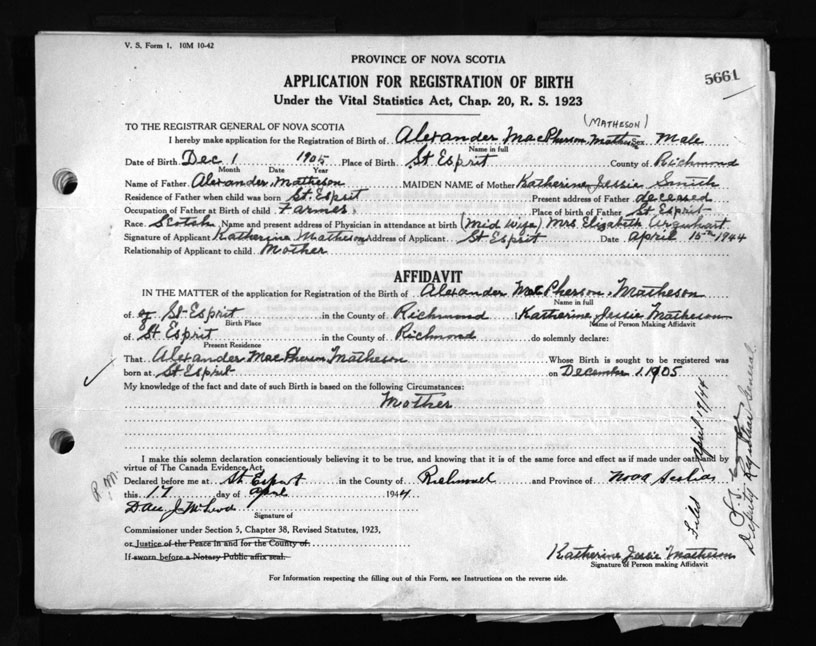 V. S. Form 1, 10M 10-42
PROVINCE OF NOVA SCOTIA
5661
APPLICATION FOR REGISTRATION OF BIRTH
Under the Vital Statistics Act, Chap. 20, R. S. 1923
(MATHESON)
TO THE REGISTRAR GENERAL OF NOVA SCOTIA
I hereby make application for the Registration of Birth of Alexander MacPherson Matheson Sex Male
Name in full
Date of Birth Dec 1 1905 Place of Birth St Esprit County of Richmond
Month Date Year
Name of Father Alexander Matheson MAIDEN NAME of Mother Katherine Jessie
Residence of Father when child was born St. Esprit Present address of Father deceased
Occupation of Father at Birth of child Farmer Place of birth of Father St Esprit
Race Scotch Name and present address of Physician in attendance at birth (Mid Wife) Mrs Elizabeth
Signature of Applicant Katherine Matheson Address of Applicant St Esprit Date April 15th 1944
Relationship of Applicant to child Mother
AFFIDAVIT
IN THE MATTER of the application for Registration of the Birth of Alexander MacPherson Matheson
Name in full
of St Esprit in the County of Richmond I Katherine Jessie Matheson
Birth Place Name of Person Making Affidavit
of St Esprit in the County of Richmond do solemnly declare:
Present Residence
That Alexander MacPherson Matheson Whose Birth is sought to be registered was
born at St Esprit on December 1. 1905
My knowledge of the fact and date of such Birth is based on the following Circumstances:
Mother
I make this solemn declaration conscientiously believing it to be true, and knowing that it is of the same force and effect as if made under oath and by
virtue of The Canada Evidence Act.
Declared before me at St. Esprit in the County of Richmond and Province of Nova Scotia
this 17 day of April 1944
Dan J McLeod
Signature of
Commissioner under Section 5, Chapter 38, Revised Statutes, 1923,
or Justice of the Peace in and for the County of
If sworn before a Notary Public affix seal.
Katherine Jessie Matheson
Signature of Person making Affidavit
For Information respecting the filling out of this Form, see Instructions on the reverse side.
Filed April 19/44
Deputy Registrar General.